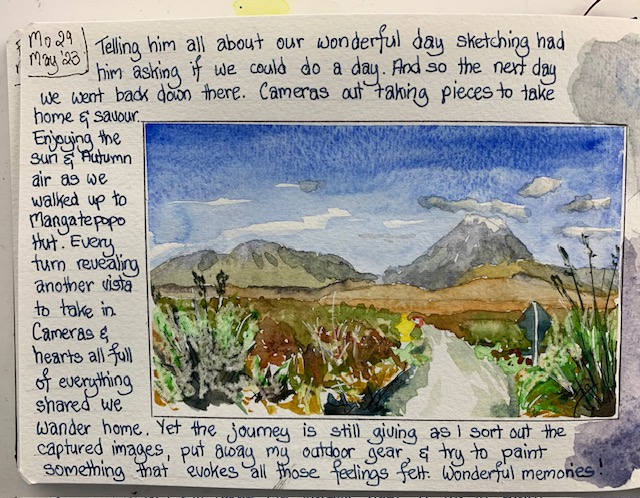 Mo 29
May '23
Telling him all about our wonderful day sketching had
him asking if we could do a day. And so the next day
we went back down there. Cameras out taking pieces to take
home & savour.
Enjoying the
sun & Autumn
air as we
walked up to
Mangatepopo
Hut. Every
turn revealing
another vista
to take in.
Cameras &
hearts all full
of everything
shared we
wander home. Yet the journey is still giving as I sort out the
captured images, put away my outdoor gear, & try to paint
something that evokes all those feelings felt. Wonderful memories!